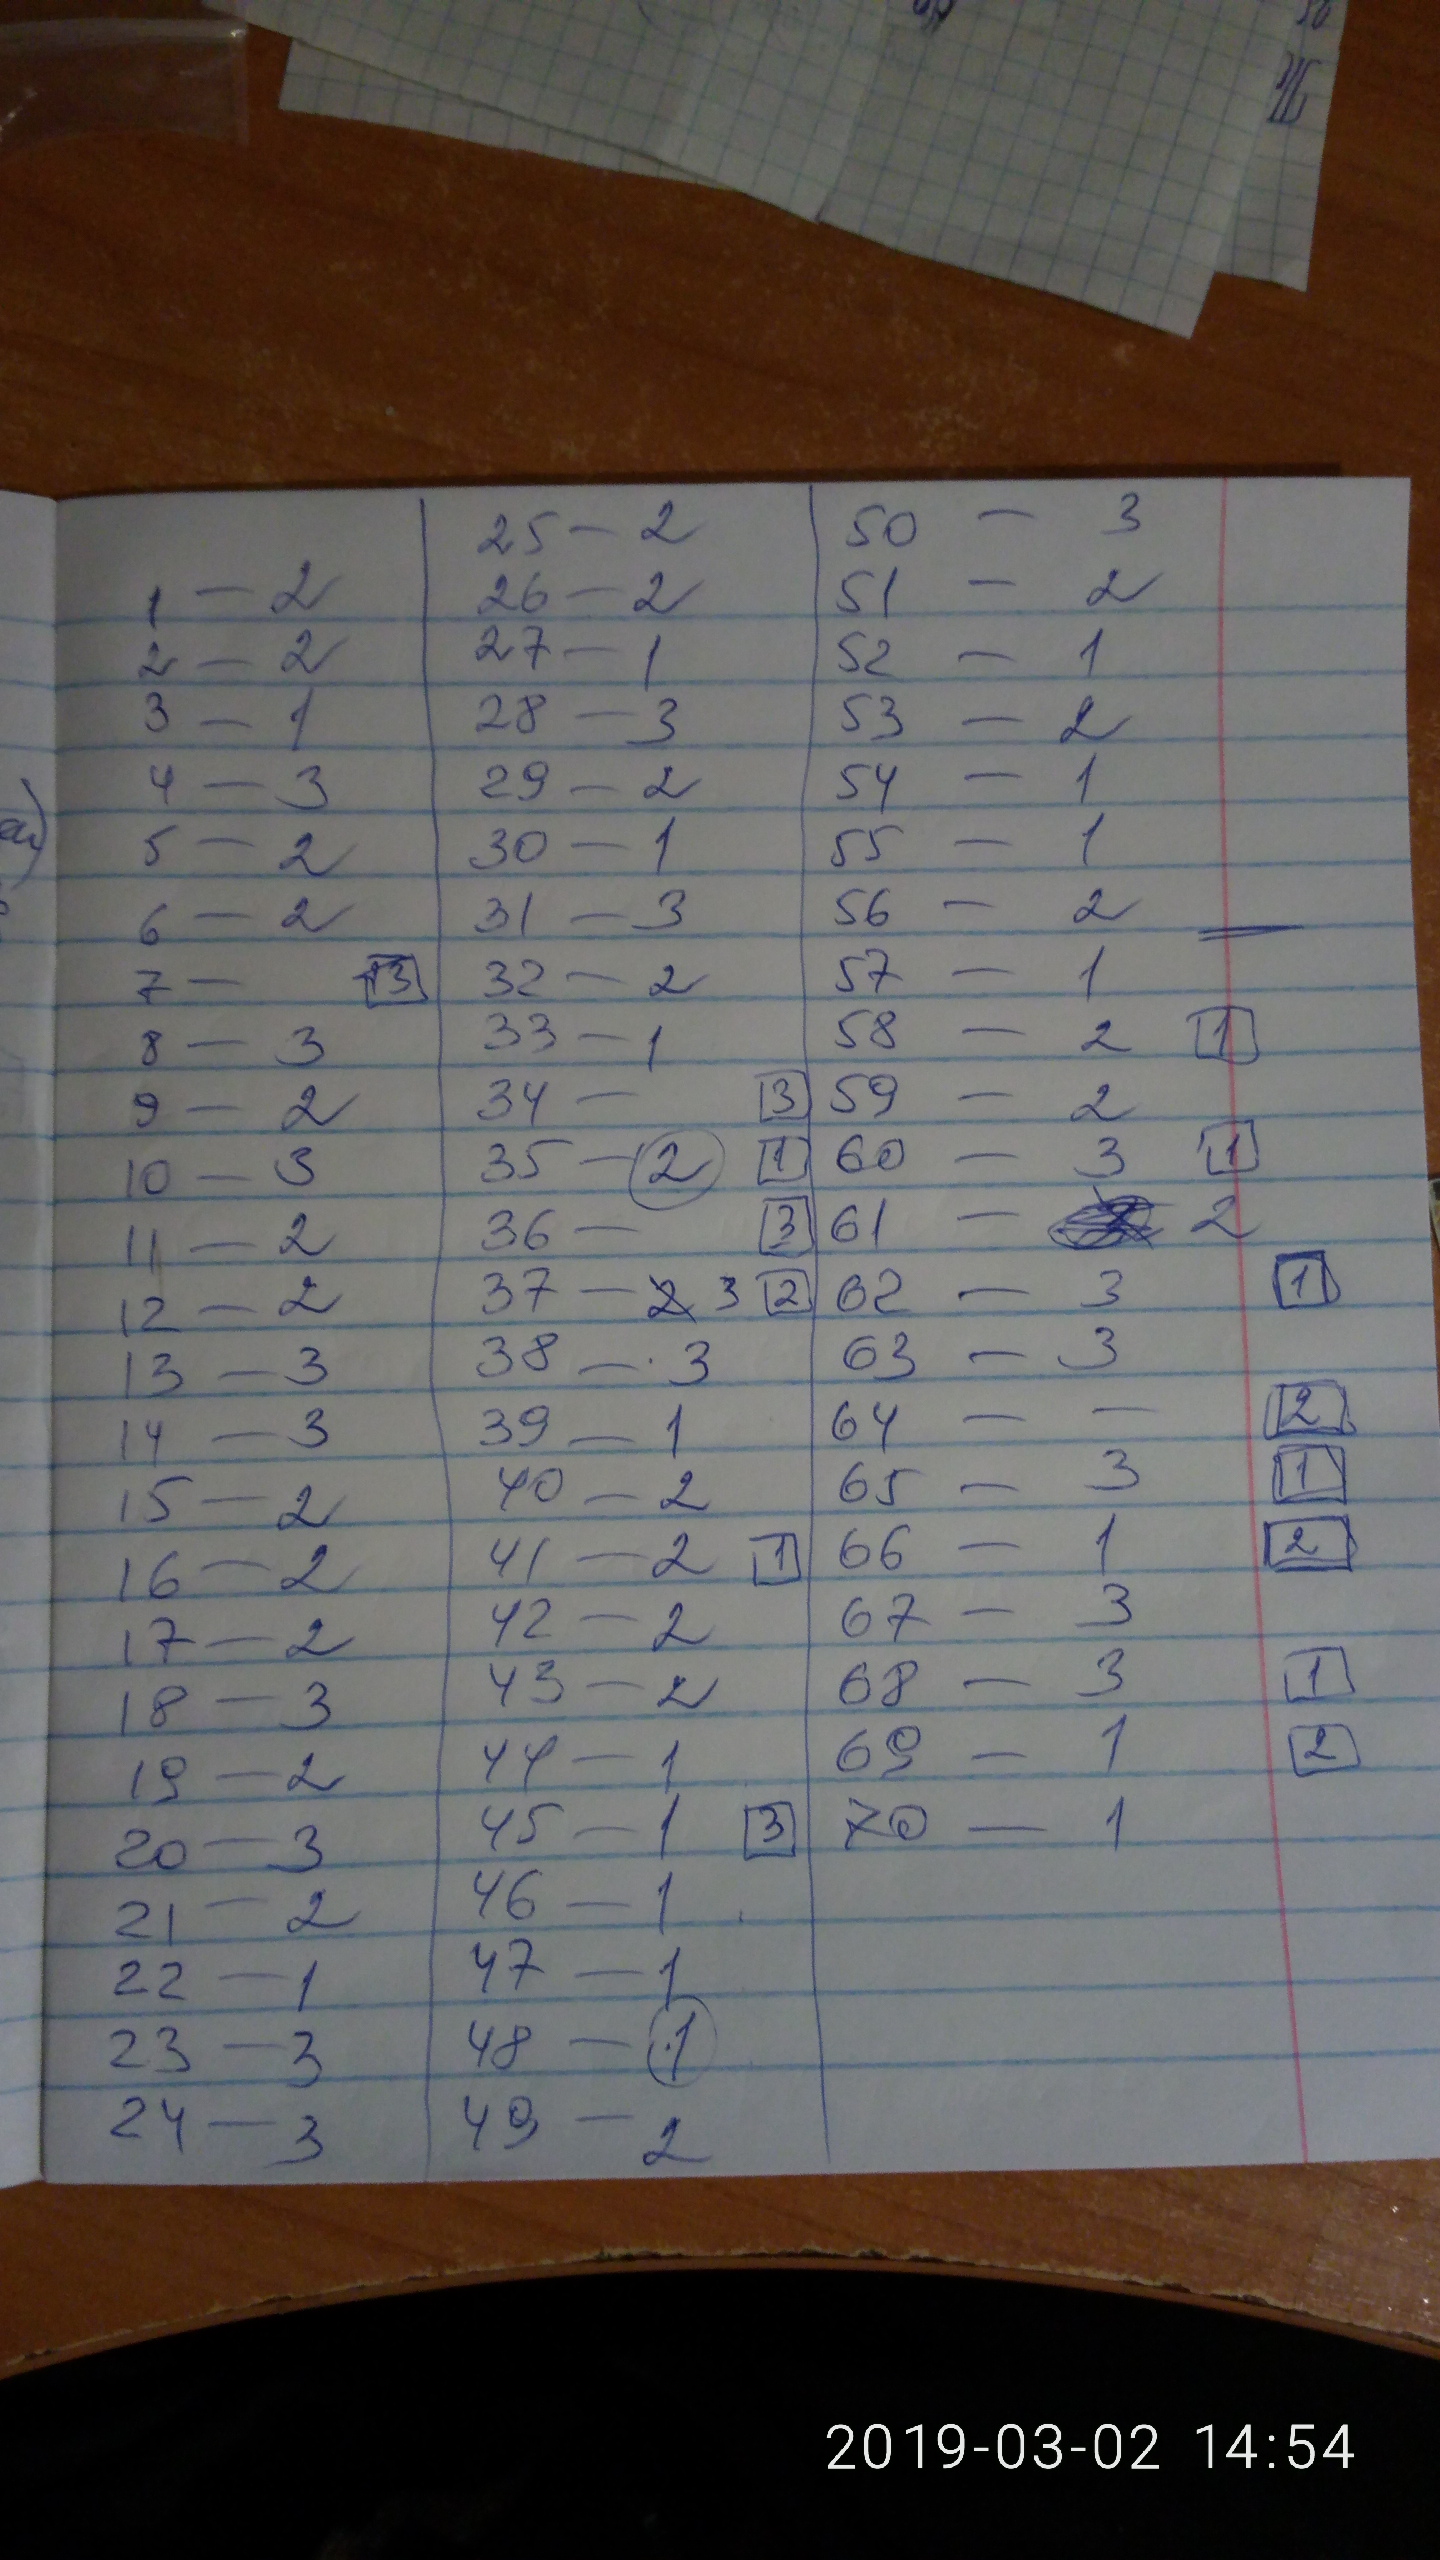 1 — 2
2 — 2
3 — 1
4 — 3
5 — 2
6 — 2
7 — 3
8 — 3
9 — 2
10 — 3
11 — 2
12 — 2
13 — 3
14 — 3
15 — 2
16 — 2
17 — 2
18 — 3
19 — 2
20 — 3
21 — 2
22 — 1
23 — 3
24 — 3
25 — 2
26 — 2
27 — 1
28 — 3
29 — 2
30 — 1
31 — 3
32 — 2
33 — 1
34 — 3
35 — 2 1
36 — 3
37 — 2 3 2
38 — 3
39 — 1
40 — 2
41 — 2 1
42 — 2
43 — 2
44 — 1
45 — 1 3
46 — 1
47 — 1
48 — 1
49 — 2
50 — 3
51 — 2
52 — 1
53 — 2
54 — 1
55 — 1
56 — 2
57 — 1
58 — 2 1
59 — 2
60 — 3 1
61 — 2
62 — 3 1
63 — 3
64 — — 2
65 — 3 1
66 — 1 2
67 — 3
68 — 3 1
69 — 1 2
70 — 1
2019-03-02 14:54